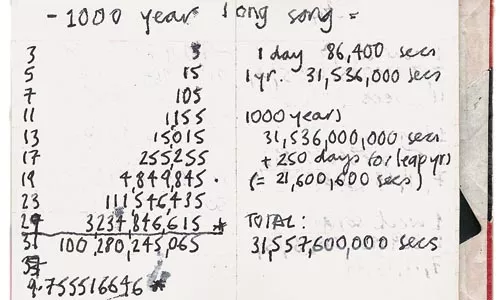 - 1000 year long song -
3 3
5 15
7 105
11 1155
13 15015
17 255255
19 4,849,845.
23 111546435
29 3234,846,615 *
31 100,280,245,065
37
9.755516646 *
1 day 86,400 secs
1 yr. 31,536,000 secs
1000 years
31,536,000,000 secs
+ 250 days for leap yrs
(= 21,600,600 secs)
TOTAL:
31,557,600,000 secs